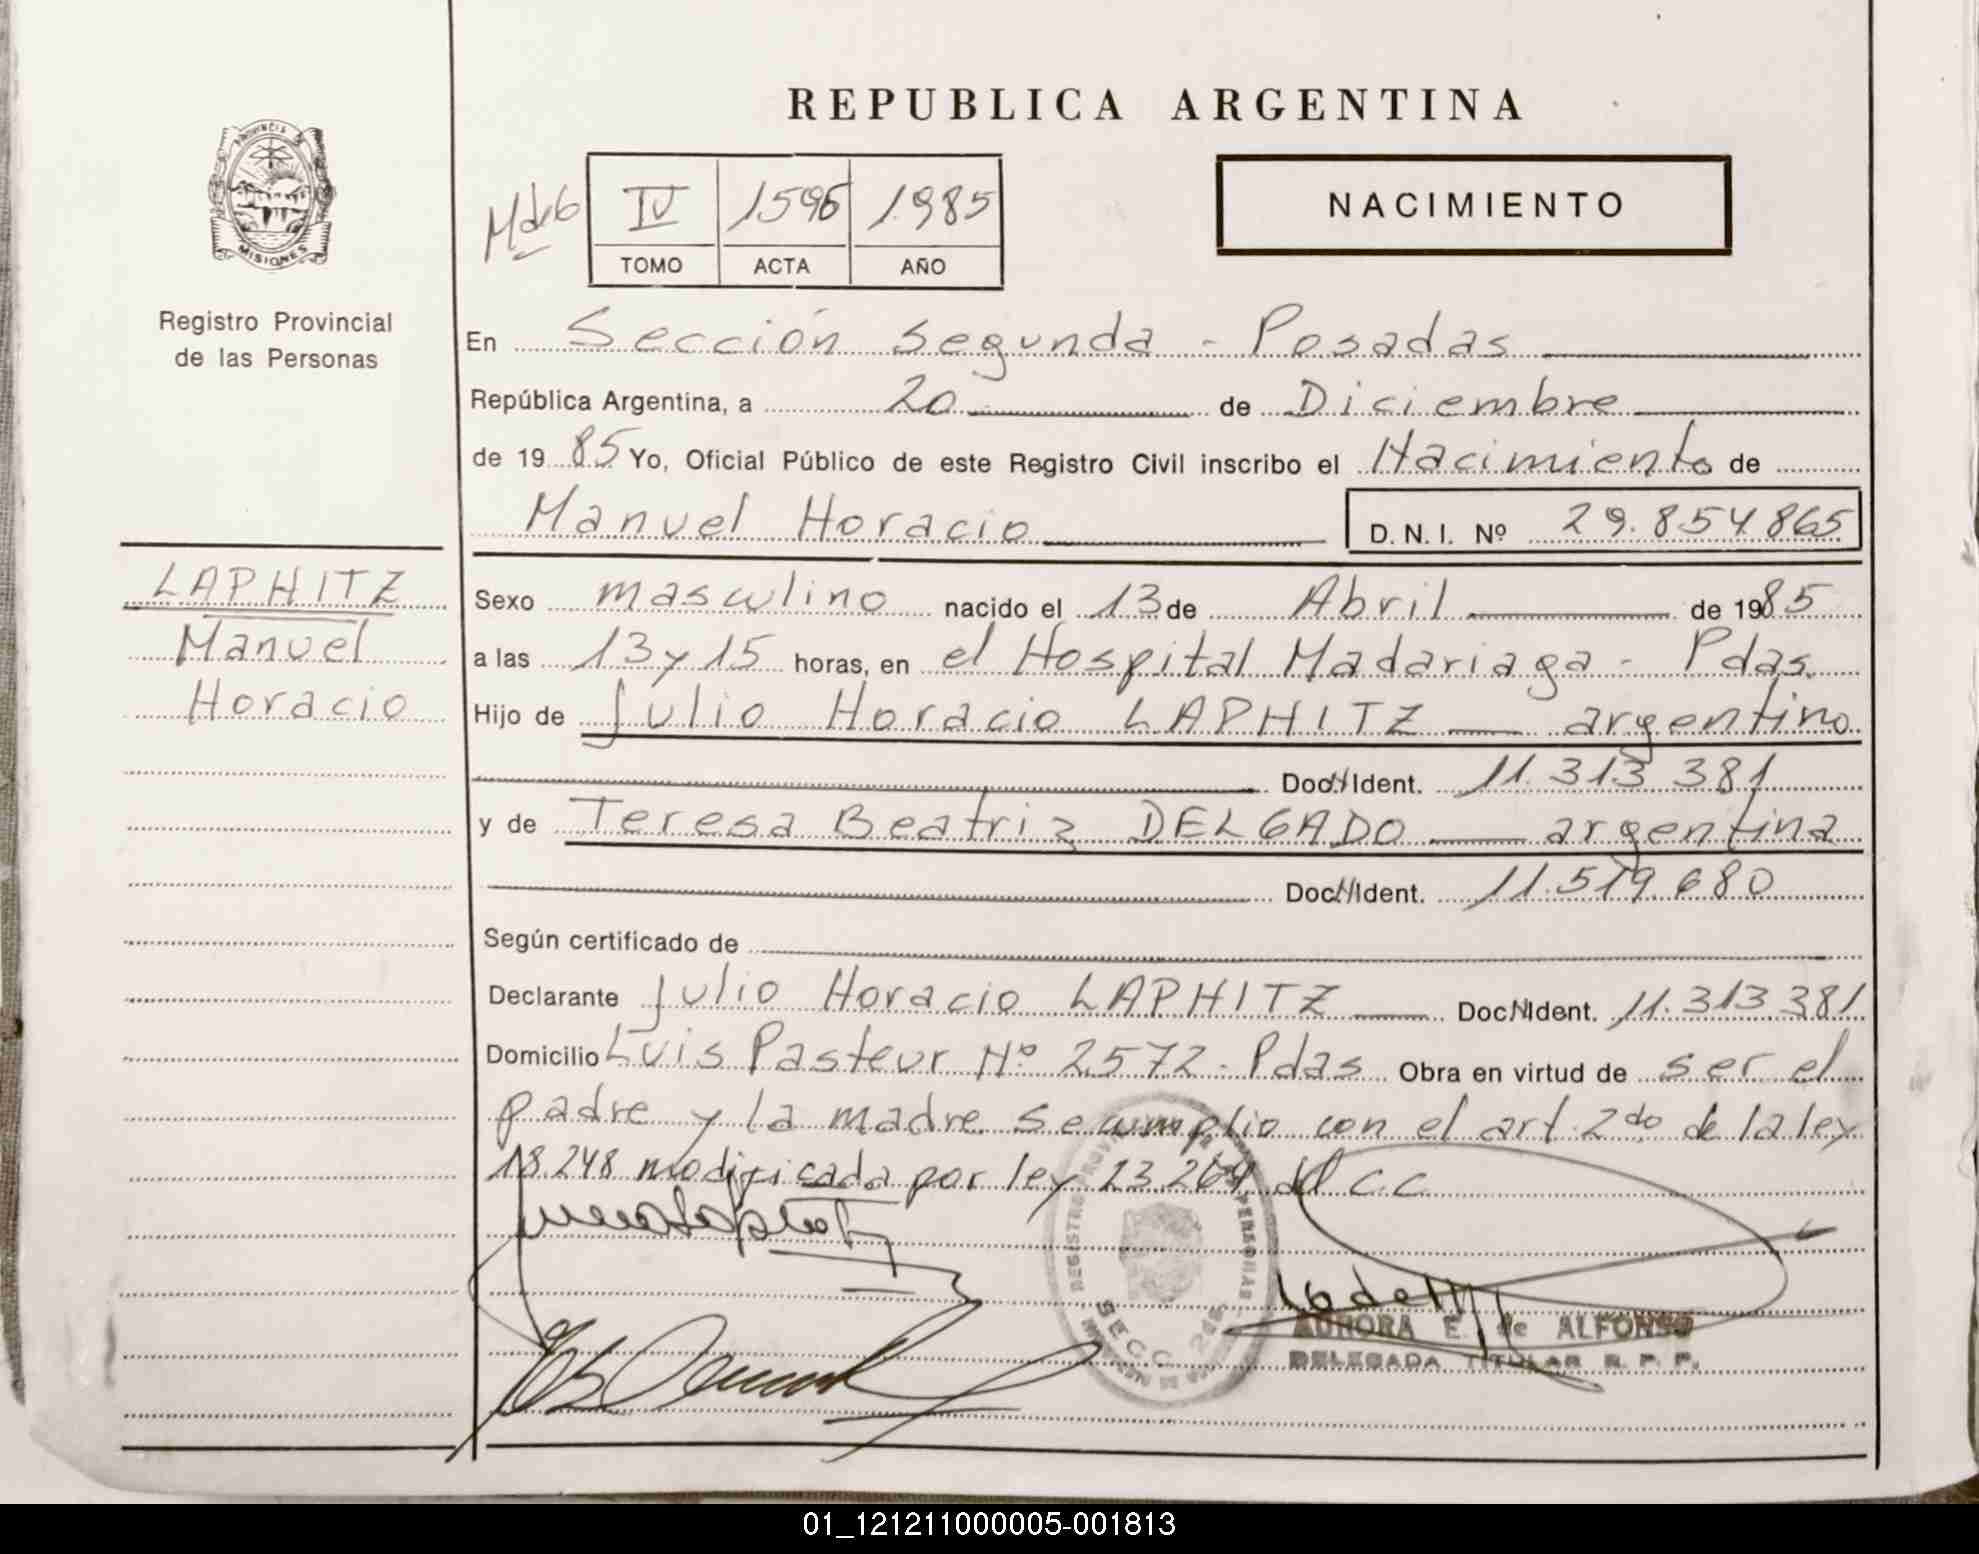 REPUBLICA ARGENTINA
PROVINCIA DE
MISIONES
Registro Provincial
de las Personas
IV 1596 1985
TOMO ACTA AÑO
NACIMIENTO
En Sección Segunda - Posadas
República Argentina, a 20 de Diciembre
de 1985 Yo, Oficial Público de este Registro Civil inscribo el Nacimiento de
Manuel Horacio D.N.I. Nº 29.854.865
LAPHITZ
Manuel
Horacio
Sexo masculino nacido el 13 de Abril de 1985
a las 13 y 15 horas, en el Hospital Madariaga - Pdas.
Hijo de Julio Horacio LAPHITZ argentino
Doc. Ident. 11.313.381
y de Teresa Beatriz DELGADO argentina
Doc. Ident. 11.519.680
Según certificado de
Declarante Julio Horacio LAPHITZ Doc. Ident. 11.313.381
Domicilio Luis Pasteur Nº 2572 - Pdas Obra en virtud de ser el
padre y la madre se cumplio con el art. 2do de la ley
18.248 modificada por ley 23.264 del C.C.
SECC. 2da
AURORA E. de ALFONSO
DELEGADA TITULAR R. P. P.
01_121211000005-001813